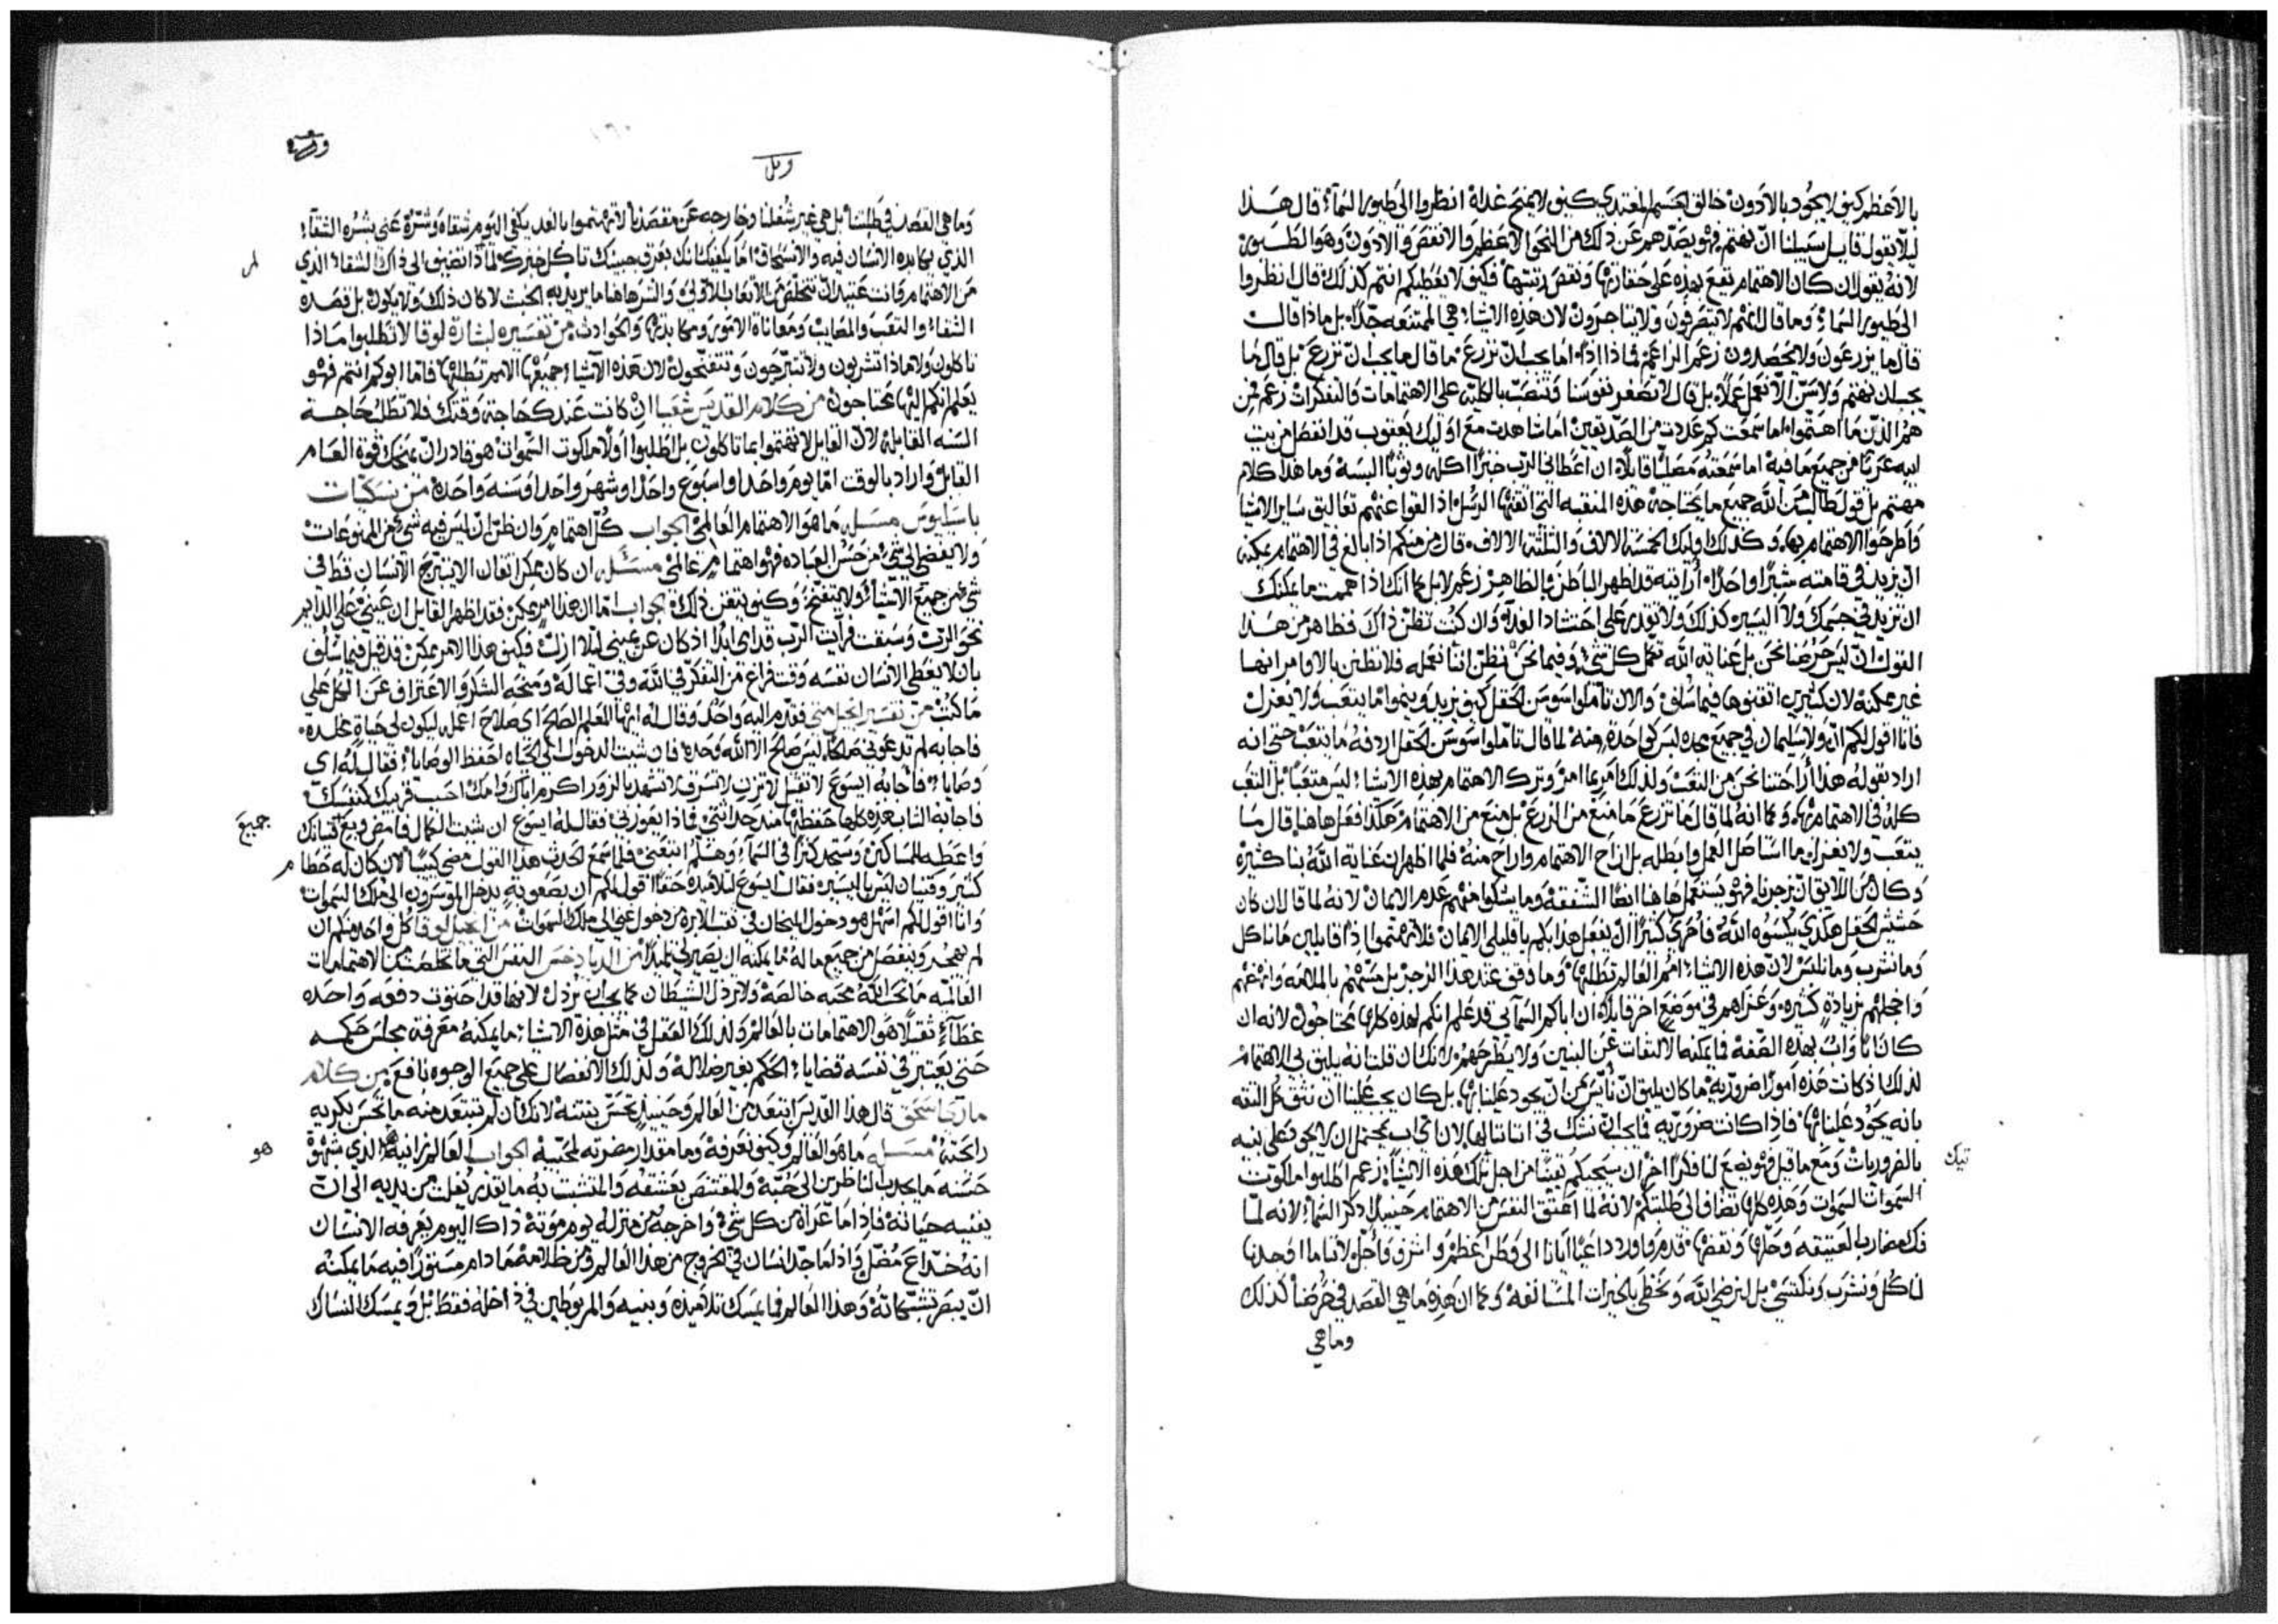 بالاعظم كيف لا يجود بالادون خالق الجسم المغتدي كيف لا يمنح غداه انظروا الى طيور السمآء قال هذا
ليلا يقول قايل سبيلنا ان نهتم فهو يصدهم عن ذلك من النحو الاعظم والانقص والادون وهو الطيور
لانه يقول ان كان الاهتمام تقع بهذه على حقارتها ونقص رتبتها فكيف لا يعطيكم انتم كذلك قال نظروا
الى طيور السمآء وما قال انهم لا يتصرفون ولا يتاجرون لان هذه الاشيآء هي الممتنعه جدا بل ماذا قال
قال ما يزرعون ولا يحصدون زعم الزاعم فماذا اذا اما يجب ان نزرع ما قال ما يجب ان نزرع بل قال ما
يجب ان نهتم ولا سن الا نعمل عملا بل قال لا نصغر نفوسنا وننصب بالكليه على الاهتمامات والتفكرات زعم فمن
هم الذين ما اهتموا اما سمعت كم عددت من الصديقين اما شاهدت مع اوليك يعقوب قد انفصل من بيت
ابيه عريا من جميع ما فيه اما سمعته مصليا قايلا ان اعطاني الرب خبزا اكله وثوبا البسه وما هذا كلام
مهتم بل قول طالب من الله جميع ما يحتاجه هذه المنقبه التي اتقنها الرسل اذ القوا عنهم تعاليق ساير الاشيا
واطرحوا الاهتمام بها وكذلك اوليك الخمسة الالاف والثلثة الالاف قال من منكم اذا بالغ في الاهتمام يمكنه
ان يزيد في قامته شبرا واحدا ارايته قد اظهر الباطن بالظاهر زعم لا بل كما انك اذا هممت ما يمكنك
ان تزيد في جسمك ولا اليسير كذلك ولا تقدر على احتشاد الغدآء وان كنت تظن ذاك فظاهر من هذا
القول ان ليس حرصنا نحن بل عناية الله تكمل كل شيء وفيما نحن نظن اننا نعمله فلا نظنن بالاوامر انها
غير ممكنة لان كثيرين اتقنوها فيما سلف والان تاملوا سوسن الحقل كيف يزيد وينموا ما يتعب ولا يغزل
فانا اقول لكم ان ولا سليمان في جميع مجده لبس كواحدة منه لما قال تاملوا سوسن الحقل اردفه ما يتعب حتى انه
اراد بقوله هذا اراحتنا نحن من التعب ولذلك امر بما امر وترك الاهتمام بهذه الاشيآء ليس متعبا بل التعب
كله في الاهتمام بها وكما انه لما قال ما تزرع ما منع من الزرع بل منع من الاهتمام هكذا فعل هاهنا قال ما
يتعب ولا يغزل ما استاصل العمل وابطله بل ازاح الاهتمام واراح منه فلما اظهر ان عناية الله بنا كثيرة
وكان من اللايق ان يزجرنا فهو يستعمل هاهنا ايضا الشفقة وما يشكوا منهم عدم الايمان لانه لما قال ان كان
حشيش الحقل هكذي يكسوه الله فاحرى كثيرا ان يفعل هذا بكم يا قليلي الايمان فلا تهتموا اذا قايلين ما ناكل
وما نشرب وما نلبس لان هذه الاشيآء امم العالم تطلبها وما وقف عند هذا الزجر بل مسهم بالملامه وانه غمهم
واخجلهم بزيادة كثيره وعزاهم في موضع اخر قايلا ان اباكم السمآءي قد علم انكم لهذه كلها محتاجون لانه ان
كان اباؤنا بهذه الصفه فما يمكنه الالتفات عن البنين ولا يطرحهم لانك ان قلت انه يليق بي الاهتمام
لذلك اذ كانت هذه امورا ضروريه ما كان يليق ان نأيس من ان يجود علينا بها بل كان يجب علينا ان نثق كل الثقه
بانه يجود علينا بها فاذا كانت ضروريه فما يجب ان نشك في اننا ننالها لان اي اب يحتمل ان لا يجود على بنيه
بالضروريات ومع ما قيل فهو يضع لنا فكرا اخر ان سيجيكم يقينا من اجل تلك هذه الاشيآء زعم اطلبوا ملكوت
تيك
السموات السموت وهذه كلها تضاف الى طلبتكم لانه لما اعتق النفس من الاهتمام حينيد ذكر السمآء لانه لما
فك مضارب العتيقه وحلها ونقضها قدم واورد داعيا ايانا الى وطن اعظم واشرف واجل لاننا ما اوجدنا
لناكل ونشرب ونكتسي بل لنرضي الله ونحظى بالخيرات المستانفه وكما ان هذه ما هي القصد في حرصنا كذلك
وما هي
وبل
وما هي القصد في طلبتنا بل هي غير شغلنا وخارجه عن مقصدنا لا تهتموا بالغد يكفي اليوم شقاه وشره عني بشره الشقآء
الذي يكابده الانسان فيه والانسحاق اما يكفيك انك بعرق جبينك تاكل خبزك لماذا تضيف الى ذاك الشقاء الذي
من الاهتمام وانت عتيد ان تتخلص من الاتعاب الاولى والشر هاهنا ما يريد به الخبث لا كان ذلك ولا يكون بل قصده
الشقاء والتعب والمصايب ومعاناة الامور ومكابدتها والحوادث من تفسيره لبشارة لوقا لا تطلبوا ماذا
تاكلون ولا ماذا تشربون ولا تتبرجون وتتفنجون لان هذه الاشيآء جميعها الامم تطلبها فاما ابوكم انتم فهو
يعلم انكم اليها محتاجون من كلام القديس شعيا ان كانت عندك حاجة وقتك فلا تطلب حاجة
السنه القابله لان القايل لا تهتموا بما تاكلون بل اطلبوا اولا ملكوت السموات هو قادر ان يمنحك قوة العام
القابل واراد بالوقت اما يوم واحدا واسبوع واحدا وشهر واحدا وسنه واحدة من نسكيات
باسيليوس مسئله ما هو الاهتمام العالمي الجواب كل اهتمام وان ظن ان ليس فيه شيء من الممنوعات
ولا يفضي الى شيء من حسن العباده فهو اهتمام عالمي مسئله ان كان ممكن اتقان الا يتبرج الانسان قط في
شيء من جميع الاشيآء ولا يتفنج وكيف يتقن ذلك جواب اما ان هذا امر ممكن فقد اظهر القايل ان عيني على الدايم
نحو الرب وسبقت فرآيت الرب قدامي ابدا اذ كان عن يميني ليلا ازل فكيف هذا الامر ممكن قد قيل فيما سلف
بان لا يعطي الانسان نفسه وقت فراغ من التفكر في الله وفي اعماله ومنحه الشكر والاعتراف عن الكل على
ما كنت من تفسير انجيل متى فتقدم اليه واحد وقال له ايها المعلم الصالح اي صلاح اعمله ليكون لي حياة مخلده
فاجابه لم تدعوني صالحا ليس صالح الا الله وحده فان شيت الدخول الى الحياه احفظ الوصايا فقال له اي
وصايا فاجابه ايسوع لا تقتل لا تزن لا تسرق لا تشهد بالزور اكرم اباك وامك احبب قريبك كنفسك
فاجابه الشاب هذه كلها حفظتها منذ حداثتي فماذا يعوزني فقال له ايسوع ان شيت الكمال فامض وبع قنيانك
جميع
واعطيه للمساكين وستجد كنزا في السمآء وهلم اتبعني فلما سمع الحدث هذا القول مضى كئيبا لان كان له حطام
كثير وقنيان ليس باليسير فقال ايسوع لتلاميذه حقا اقول لكم ان بصعوبة يدخل الموسرون الى ملك السموات
وانا اقول لكم اسهل هو دخول الحبال في ثقب الابره من دخول غني الى ملك السموات من انجيل لوقا كل واحد منكم ان
لم يهجر وينفصل من جميع ماله ما يمكنه ان يصير لي تلميذا من الدياذخس النفس التي ما تخلصت من الاهتمامات
العالميه ما تحب الله محبه خالصه ولا ترذل الشيطان كما يجب ان ترذل لانها قد احتوت دفعه واحده
غطآء ثقيلا هو الاهتمامات بالعالم ولذلك العقل في مثل هذه الاشيآء ما يمكنه معرفة مجلس حكمه
حتى يعتبر في نفسه قضايا الحكم بغير ضلاله ولذلك الانفصال على جميع الوجوه نافع من كلام
مار اسحق قال هذا القديس ابتعد من العالم وحينيد تحس بنتنه لانك ان لم تبتعد منه ما تحس بكريه
رايحته مسئله ما هو العالم وكيف نعرفه وما مقدار مضرته لمحبيه الجواب العالم زانية الذي شهوة
هو
حسنه ما يجذب الناظرين الى حبه والمقتنص بعشقه والمتشبث به ما يقدر يفلت من يديه الى ان
يفنيه حياته فاذا ما عراه من كل شيء واخرجه من منزله يوم موته ذاك اليوم يعرفه الانسان
انه خداع مضل واذا ما جد الانسان في الخروج من هذا العالم ومن ظلامه ما دام مستورا فيه ما يمكنه
ان يبصر تشبكاته وهذا العالم فما يمسك تلاميذه وبنيه والمربوطين في داخله فقط بل ويمسك النساك